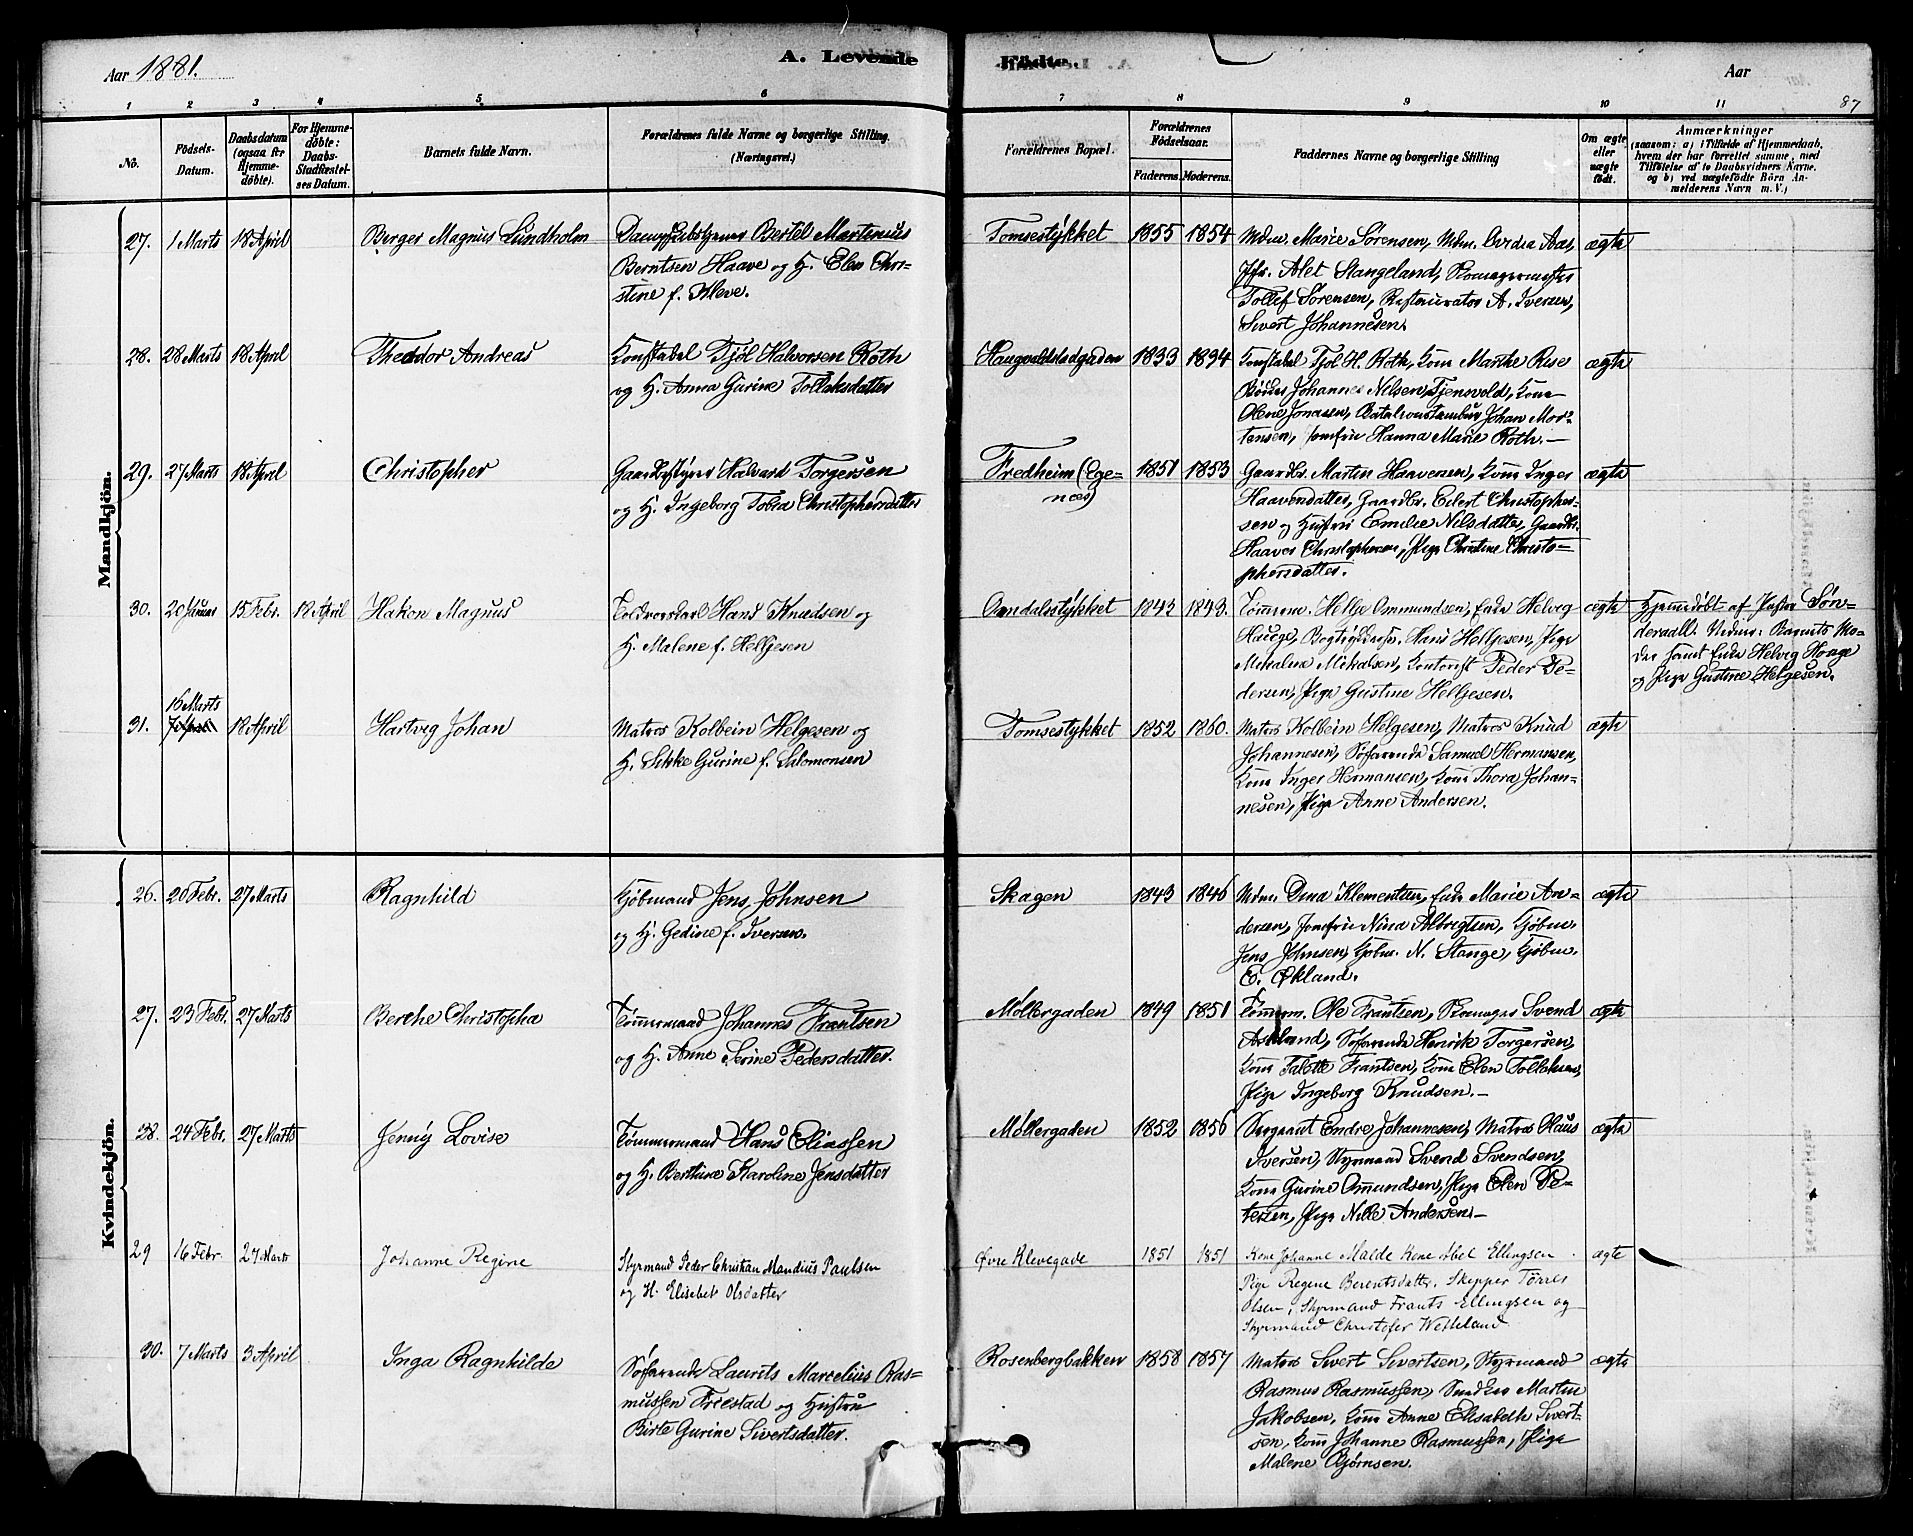 Aar 1881.
A. Levende Fødte.
Aar
87
1 2 3 4 5 6 7 8 9 10 11
No.
Födsels-Datum.
Daabsdatum (ogsaa for Hjemmedøbte).
For Hjemmedøbte: Daabs-Stadfæstelses Datum.
Barnets fulde Navn.
Forældrenes fulde Navne og borgerlige Stilling. (Næringsvei.)
Forældrenes Bopæl.
Forældrenes Födselsaar.
Faderens. Moderens.
Faddernes Navne og borgerlige Stilling
Om ægte eller uægte født.
Anmærkninger
(saasom: a) i Tilfælde af Hjemmedaab, hvem der har forrettet samme, med Tilføielse af to Daabsvidners Navne, og b) ved uægtefødte Börn Anmelderens Navn m. V.)
Mandkjön.
27. 1 Marts 18 April Berger Magnus Lundholm
Bertel Martinius
Berntsen Haave og H. Elen Chri-
stine f. Kleve.
Tomsestykket 1855 1854
Mdm. Marie Sørensen, Mdm. Aas,
Jfr. Alet Stangeland,
Tollef Sörensen, Restauratør A. Iversen,
Sivert Johannesen.
ægte
28. 28 Marts 18 April Theodor Andreas
Konstabel Tjöl Halvorsen Roth
og H. Anna Gurine Tollaksdatter
1833 1834
Konstabel Tjöl H. Roth, Kone Marthe Rise
Johannes Nilsen, Tjensvold, Kone
Olene Jonassen, Johan Mor-
tensen, Jomfru Hanna Marie Roth.—
ægte
29. 27 Marts 18 April Christopher
Halvard Torgersen
og H. Ingeborg Tobia Christophersdatter
Fredheim (Ege-
nes)
1851 1853
Gaardbr. Martin Haaversen, Kone Inger
Haaversdatter, Gaardbr. Eilert Christopher-
sen og Hustru Emilie Nilsdatter, Gaardbr.
Haaver Christophersen, Pige Christine Christo-
phersdatter.
ægte
30. 20 Januar 15 Febr. 18 April Hakon Magnus
Hans Knudsen og
H. Malene f. Helgesen
1843 1843.
Tömmerm. Helge Ommundsen, Enke Helvig
Hauge, Hans Helgesen, Pige
Mikaline Mikalsen, Kontorist Peder Pe-
dersen, Pige Gustine Helgesen.
ægte
Hjemmedöbt af Pastor Sön-
deraal. Vidner: Barnets Mo-
der samt Enke Helvig Houge
og Pige Gustine Helgesen.
31. 16 Marts 18 April Hartvig Johan
Matros Kolbein Helgesen og
H. Sikke Gurine f. Salomonsen
Tomsestykket 1852 1860.
Matros Kolbein Helgesen, Matros Knud
Johannesen, Söfarende Samuel Hermansen,
Kone Inger Hermansen, Kone Thora Johan-
nesen, Pige Anne Andersen.
ægte
Kvindekjön.
26. 20 Febr. 27 Marts Ragnhild
Kjöbmand Jens Johnsen
og H. Gedine f. Iversen.
Skagen 1843 1846
Mdm. Dina Klementsen, Enke Marie An-
dersen, Jomfru Nina Albregtsen, Kjöbm.
Jens Johnsen, Kjöbm. N. Stange, Kjöbm.
E. Økland.
ægte
27. 23 Febr. 27 Marts Berthe Christopha
Tömmermand Johannes Frantsen
og H. Anne Serine Pedersdatter.
Möllergaden 1849 1851
Tömmerm. Ole Frantsen, Svend
Askland, Söfarende Henrik Torgersen,
Kone Talette Frantsen, Kone Elen Tollaksen,
Pige Ingeborg Knudsen.—
ægte
28. 24 Febr. 27 Marts Jenny Lovise
Tömmermand Hans Eliassen
og H. Bertine Karoline Jensdatter
Möllergaden 1852 1856
Sergeant Endre Johannesen, Matros Claus
Iversen, Styrmand Svend Svendsen,
Kone Gurine Omundsen, Pige Elen Pe-
tersen, Pige Nille Andersen.—
ægte
29 16 Febr. 27 Marts Johanne Regine
Styrmand Peder Christian Mandius Paulsen
og H. Elisebet Olsdatter
Øvre Klevegade 1851 1851
Kone Johanne Malde Kone Abel Ellingsen
Pige Regine Berentsdatter. Skipper Törres
Olsen, Styrmand Frants Ellingsen og
Styrmand Christofer Wetteland
ægte
30. 7 Marts 3 April Inga Ragnhilde
Söfarende Laurits Marcelius Ras-
mussen Friestad og Hustru
Birte Gurine Sivertsdatter.
Rosenbergbakken 1858 1857
Matros Sivert Sivertsen, Styrmand
Rasmus Rasmussen, Martin
Jakobsen, Kone Anne Elisabeth Sivert-
sen, Kone Johanne Rasmussen, Pige
Malene Bjørnsen.
ægte